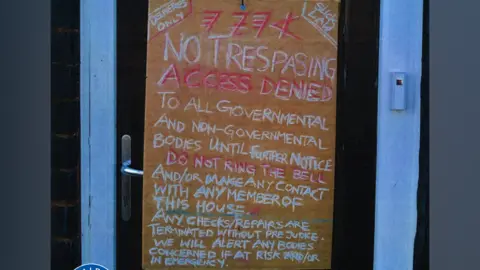 DELIVERIES
ONLY
NO TRESPASING
ACCESS DENIED
TO ALL GOVERNMENTAL
AND NON-GOVERNMENTAL
BODIES UNTIL FURTHER NOTICE
DO NOT RING THE BELL
AND/OR MAKE ANY CONTACT
WITH ANY MEMBER OF
THIS HOUSE.
ANY CHECKS/REPAIRS ARE
TERMINATED WITHOUT PREJUDICE.
WE WILL ALERT ANY BODIES
CONCERNED IF AT RISK AND/OR
IN EMERGENCY.